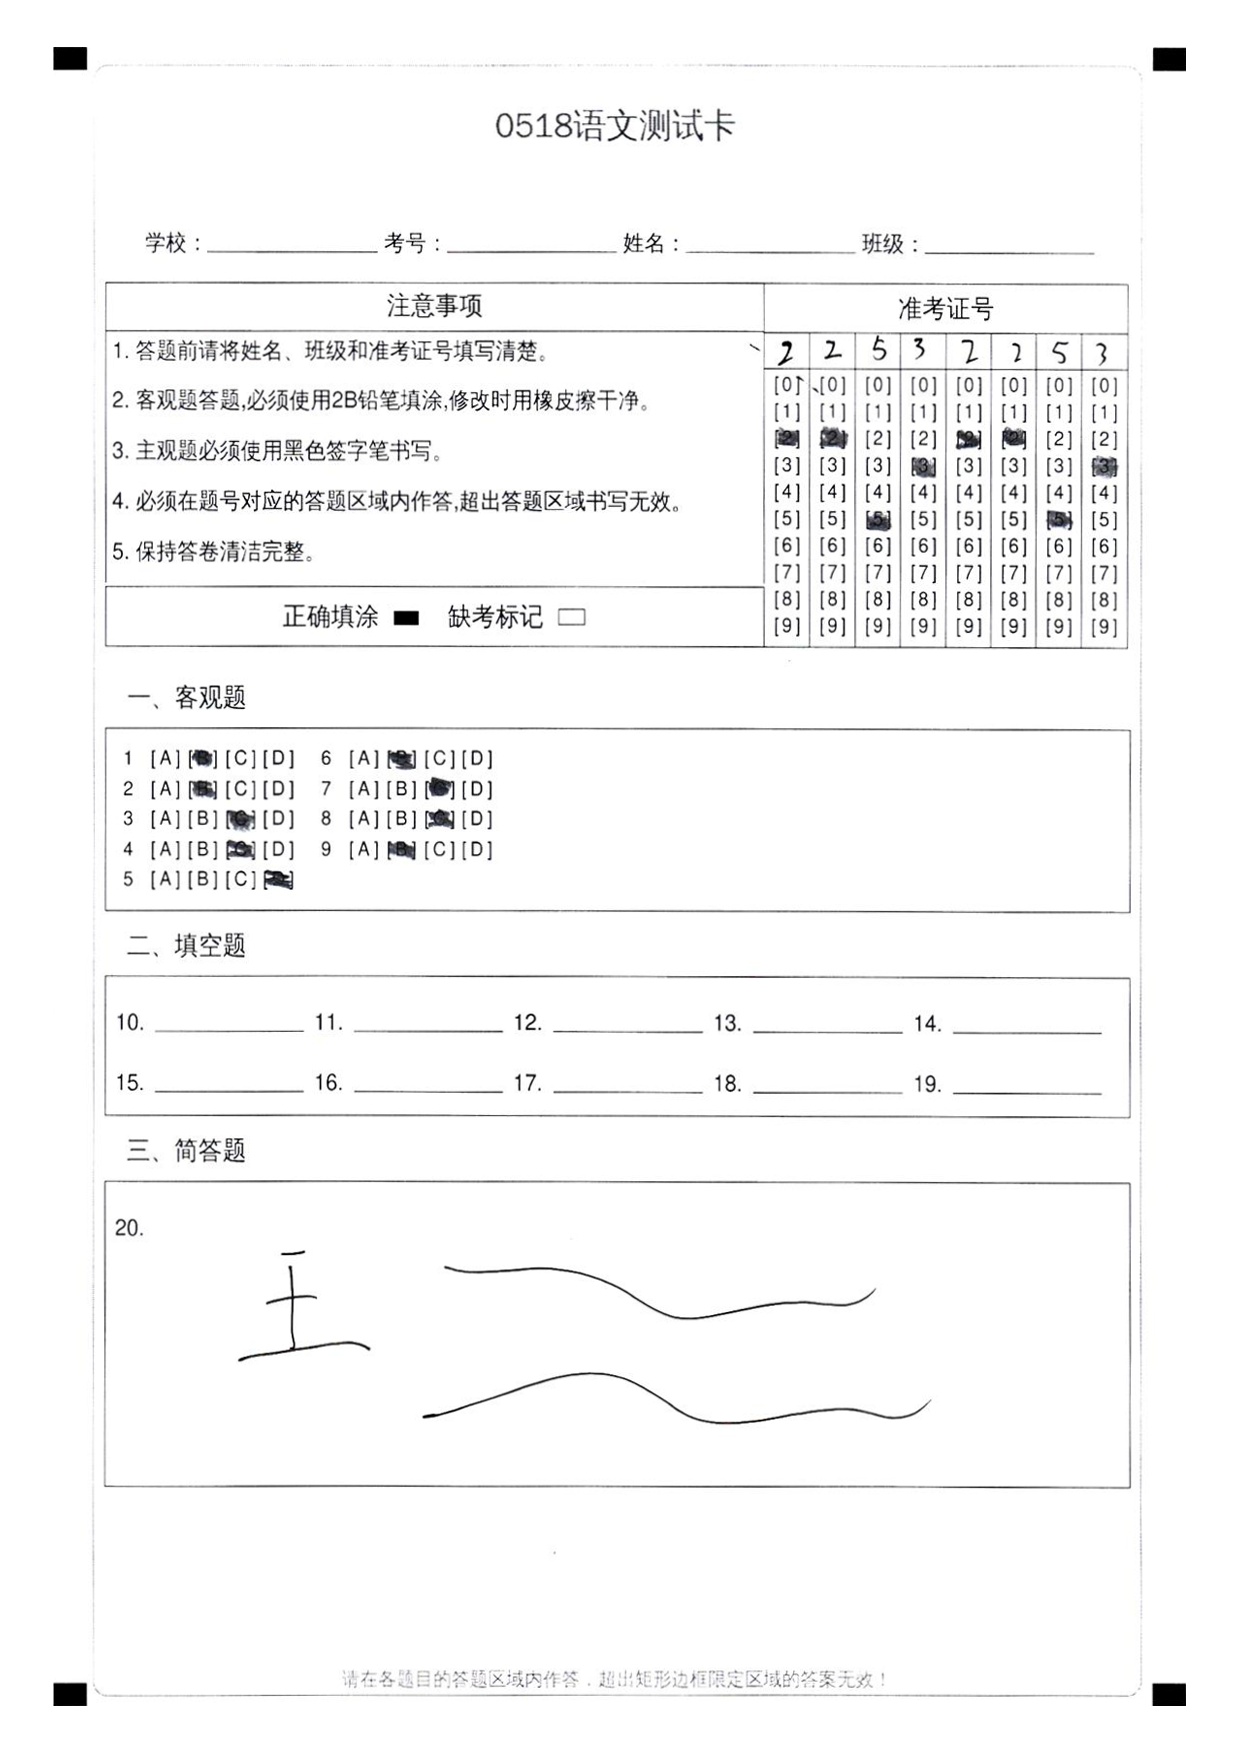 0518语文测试卡
学校：____ 考号：____ 姓名：____ 班级：____
注意事项
1. 答题前请将姓名、班级和准考证号填写清楚。
2. 客观题答题,必须使用2B铅笔填涂,修改时用橡皮擦干净。
3. 主观题必须使用黑色签字笔书写。
4. 必须在题号对应的答题区域内作答,超出答题区域书写无效。
5. 保持答卷清洁完整。
正确填涂 ■ 缺考标记 □
准考证号
2 2 5 3 2 2 5 3
[0] [0] [0] [0] [0] [0] [0] [0]
[1] [1] [1] [1] [1] [1] [1] [1]
[2] [2] [2] [2] [2] [2] [2] [2]
[3] [3] [3] [3] [3] [3] [3] [3]
[4] [4] [4] [4] [4] [4] [4] [4]
[5] [5] [5] [5] [5] [5] [5] [5]
[6] [6] [6] [6] [6] [6] [6] [6]
[7] [7] [7] [7] [7] [7] [7] [7]
[8] [8] [8] [8] [8] [8] [8] [8]
[9] [9] [9] [9] [9] [9] [9] [9]
一、客观题
1 [A] [B] [C] [D] 6 [A] [B] [C] [D]
2 [A] [B] [C] [D] 7 [A] [B] [C] [D]
3 [A] [B] [C] [D] 8 [A] [B] [C] [D]
4 [A] [B] [C] [D] 9 [A] [B] [C] [D]
5 [A] [B] [C] [D]
二、填空题
10. ____ 11. ____ 12. ____ 13. ____ 14. ____
15. ____ 16. ____ 17. ____ 18. ____ 19. ____
三、简答题
20.
王
请在各题目的答题区域内作答，超出矩形边框限定区域的答案无效！